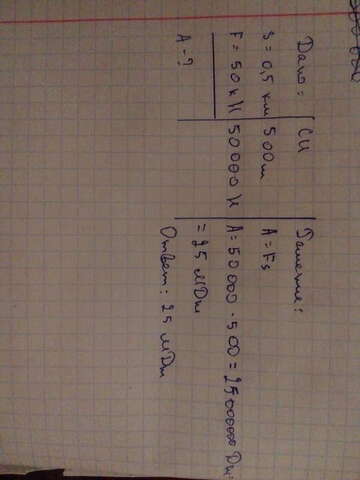 Дано:
S = 0,5 км
F = 50 кН
A - ?
СИ
500 м
50 000 Н
A = Fs
A = 50 000 · 500 = 25000000 Дж
= 25 МДж
Ответ: 25 МДж